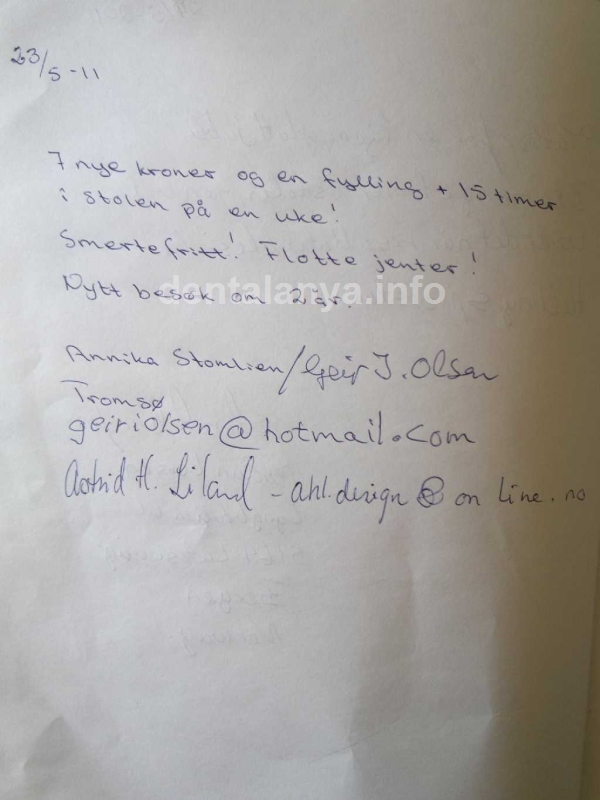 23/5-11
7 nye kroner og en fylling + 15 timer
i stolen på en uke!
Smertefritt! Flotte jenter!
Nytt besøk om 2 år.
dentalanya.info
Annika Stomlien/Geir I. Olsen
Tromsø
geiriolsen@hotmail.com
Astrid H. Liland - ahl.design@on line.no